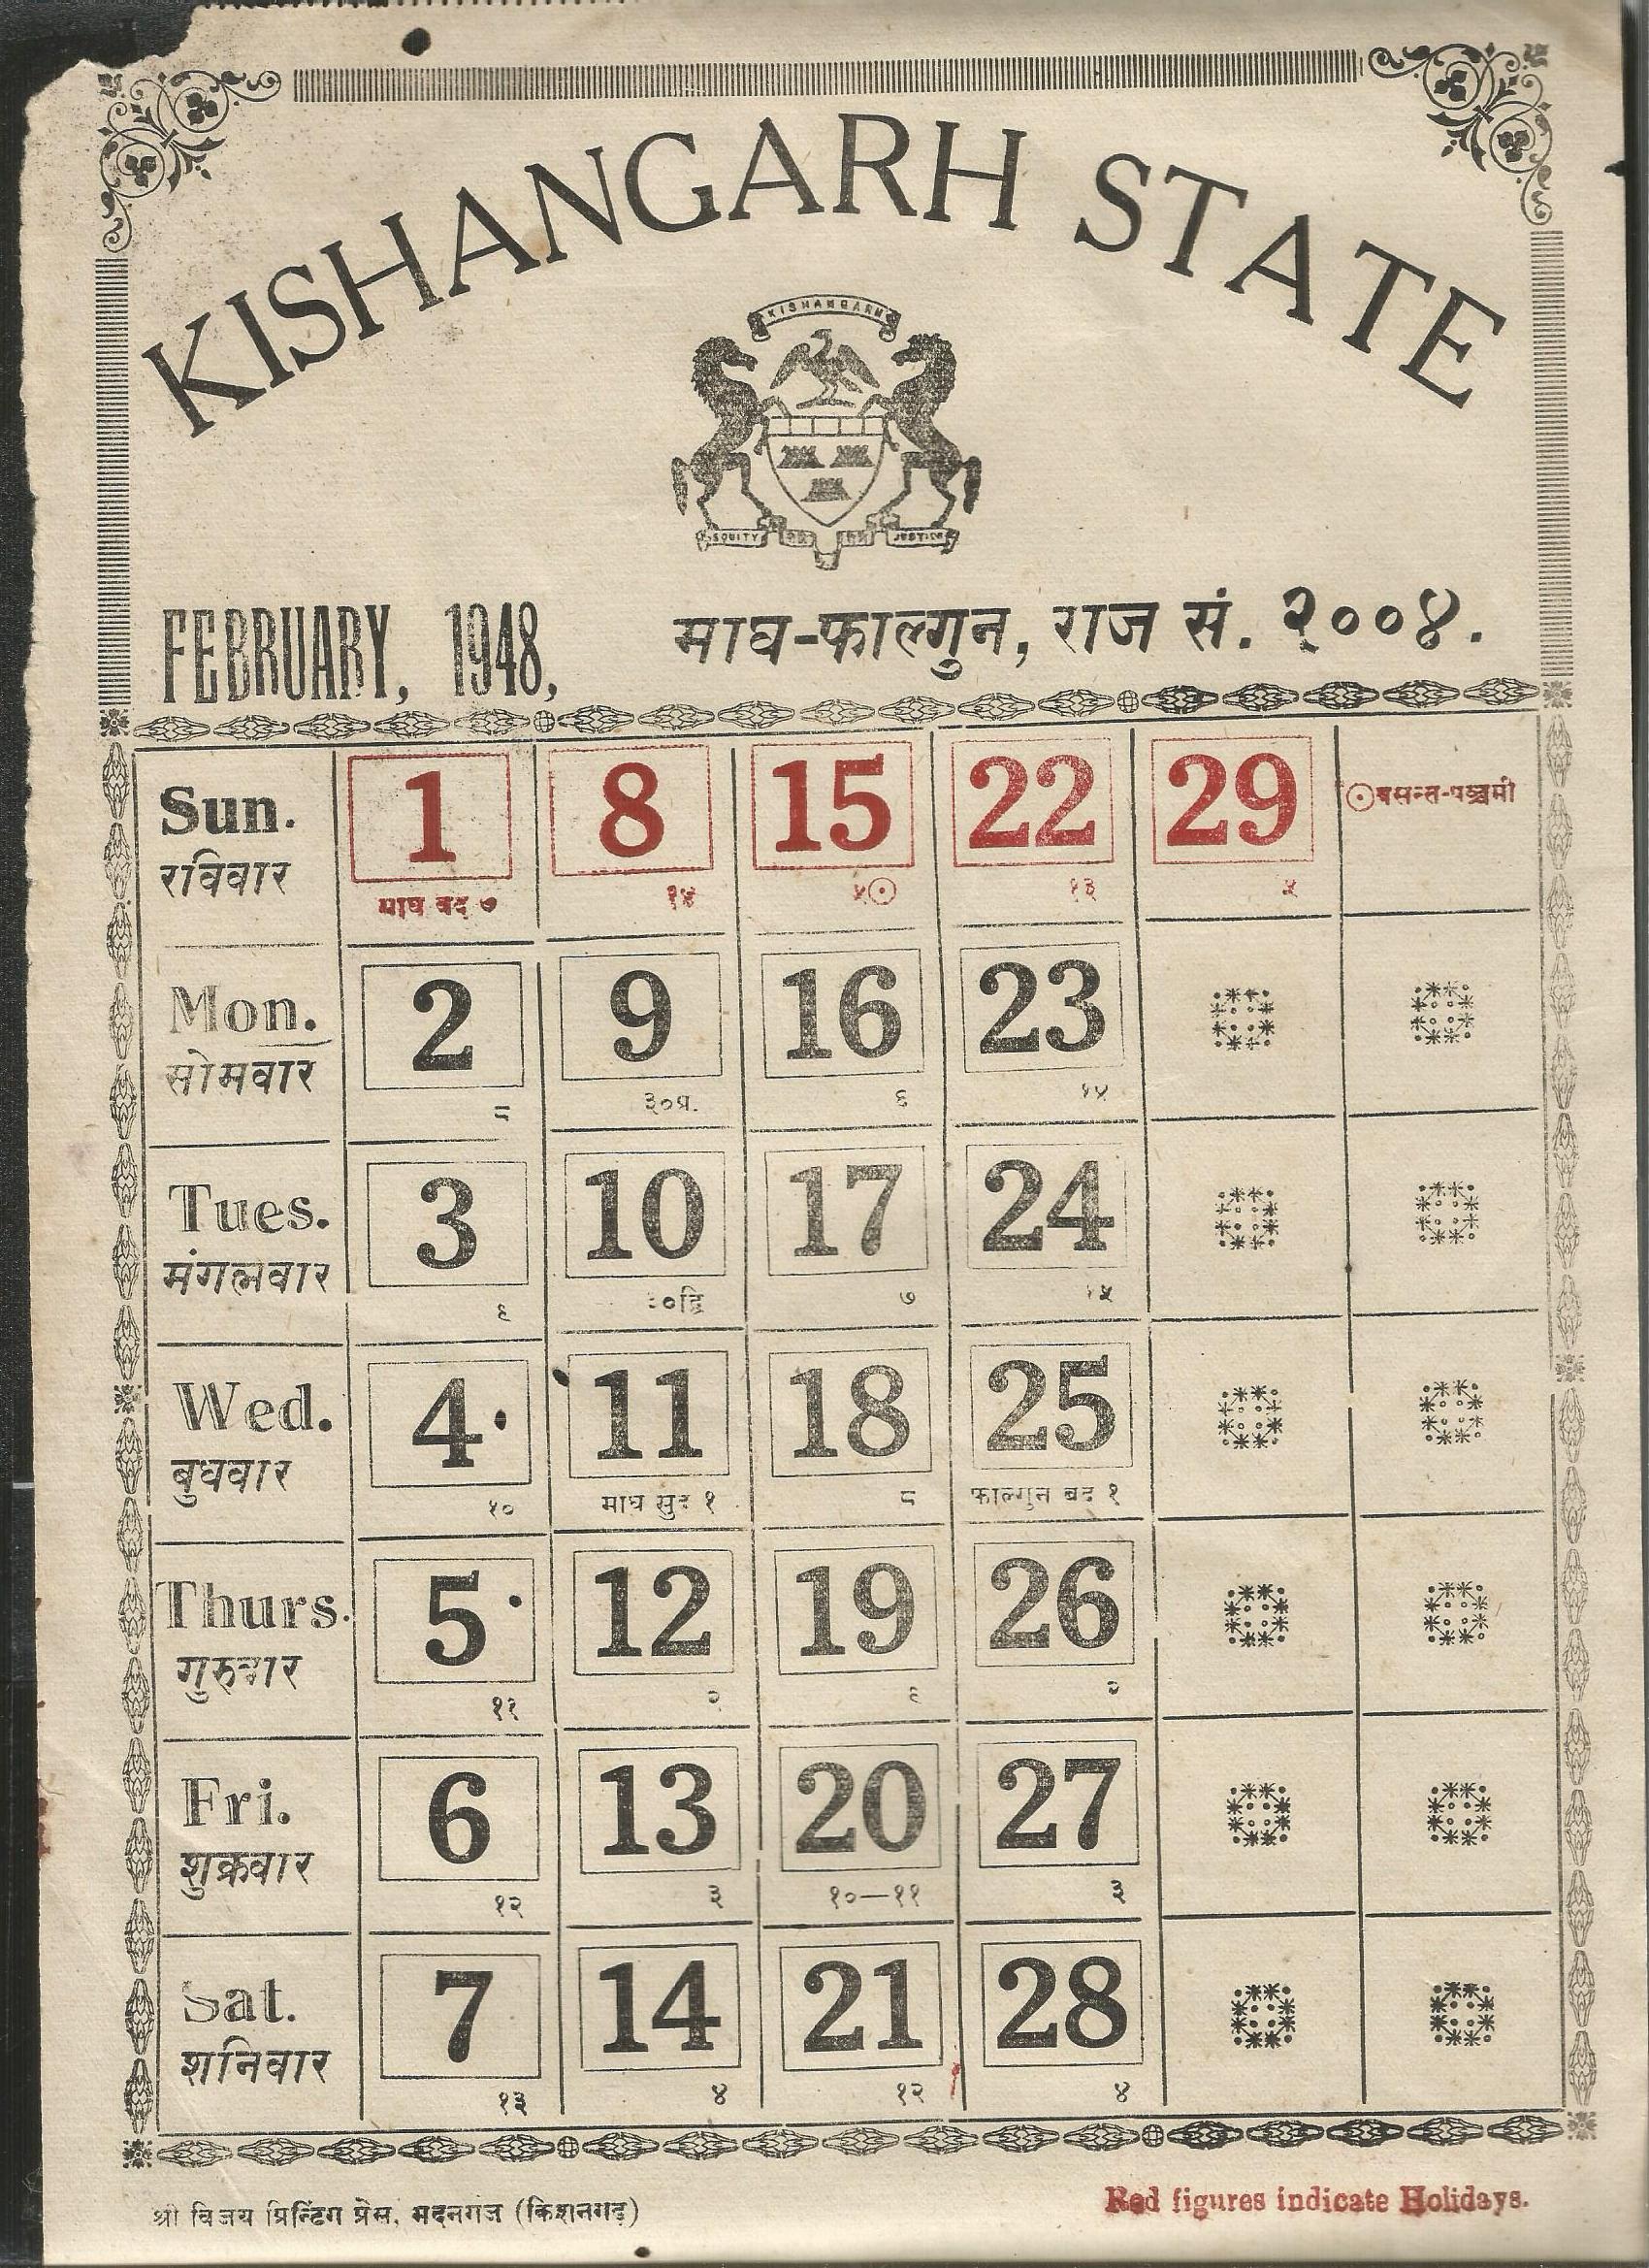 KISHANGARH STATE
KISHANGARH
EQUITY JUSTICE
FEBRUARY, 1948, माघ-फाल्गुन, राज सं. २००४.
Sun. 1 8 15 22 29 ⊙वसन्त-पञ्चमी
रविवार माघ बद ७ १४ ५⊙ १३ ५
Mon. 2 9 16 23
सोमवार ८ ३०प्र. ६ १४
Tues. 3 10 17 24
मंगलवार ९ ३०द्वि ७ १५
Wed. 4 11 18 25
बुधवार १० माघ सुद १ ८ फाल्गुन बद १
Thurs. 5 12 19 26
गुरुवार ११ २ ९ २
Fri. 6 13 20 27
शुक्रवार १२ ३ १०—११ ३
Sat. 7 14 21 28
शनिवार १३ ४ १२ ४
श्री विजय प्रिन्टिंग प्रेस, मदनगंज (किशनगढ़) Red figures indicate Holidays.